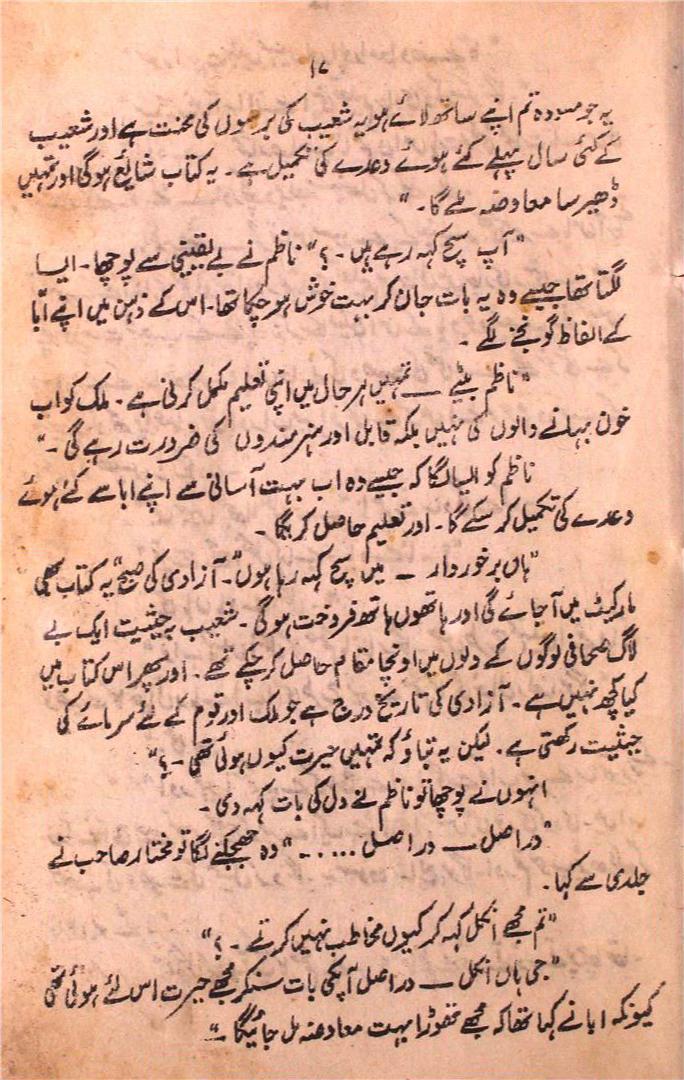 ۱۷
یہ جو مسودہ تم اپنے ساتھ لائے ہو یہ شعیب کی برسوں کی محنت ہے اور شعیب
کے کئی سال پہلے کئے ہوئے وعدے کی تکمیل ہے۔ یہ کتاب شایع ہوگی اور تمہیں
ڈھیر سا معاوضہ ملے گا۔"
"آپ سچ کہہ رہے ہیں۔؟" ناظم نے بے یقینی سے پوچھا۔ ایسا
لگتا تھا جیسے وہ یہ بات جان کر بہت خوش ہو چکا تھا۔ اس کے ذہن میں اپنے ابّا
کے الفاظ گونجنے لگے۔
"ناظم بیٹے ــــ تمہیں ہر حال میں اپنی تعلیم مکمل کرنی ہے۔ ملک کو اب
خون بہانے والوں کی نہیں بلکہ قابل اور ہنر مندروں کی ضرورت رہے گی۔"
ناظم کو ایسا لگا کہ جیسے وہ اب بہت آسانی سے اپنے ابا سے کئے ہوئے
وعدے کی تکمیل کر سکے گا۔ اور تعلیم حاصل کریگا۔
"ہاں برخوردار ــــ میں سچ کہہ رہا ہوں"۔ آزادی کی صبح" یہ کتاب بھی
مارکیٹ میں آجائے گی اور ہاتھوں ہاتھ فروخت ہوگی۔ شعیب بہ حیثیت ایک بے
لاگ صحافی لوگوں کے دلوں میں اونچا مقام حاصل کر چکے تھے۔ اور پھر اس کتاب میں
کیا کچھ نہیں ہے۔ آزادی کی تاریخ درج ہے جو ملک اور قوم کے لئے سرمائے کی
حیثیت رکھتی ہے۔ لیکن یہ بتاؤ کہ تمہیں حیرت کیوں ہوئی تھی۔؟"
انہوں نے پوچھا تو ناظم نے دل کی بات کہہ دی۔
"دراصل ــــ دراصل ....." وہ جھجکنے لگا تو مختار صاحب نے
جلدی سے کہا۔
"تم مجھے انکل کہہ کر کیوں مخاطب نہیں کرتے۔؟"
"جی ہاں انکل ــــ دراصل آپکی بات سنکر مجھے حیرت اس لئے ہوئی تھی
کیونکہ ابا نے کہا تھا کہ مجھے تھوڑا بہت معاوضہ مل جائیگا۔"